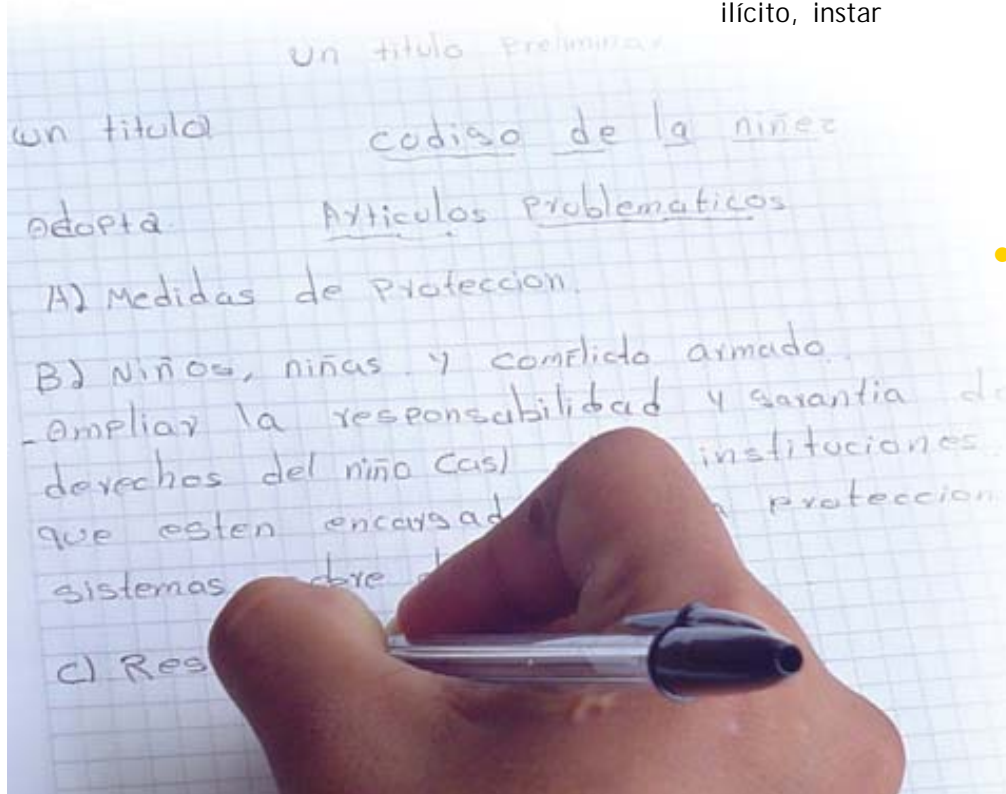 ilícito, instar
un titulo Preliminar
un titulo) codigo de la niñez
adopta. Articulos Problematicos
A) Medidas de Proteccion.
B) Niños, niñas y comflicto armado.
- Ampliar la responsabilidad y garantia de
derechos del niño (as) instituciones
que esten encargad proteccion
sistemas
C) Res